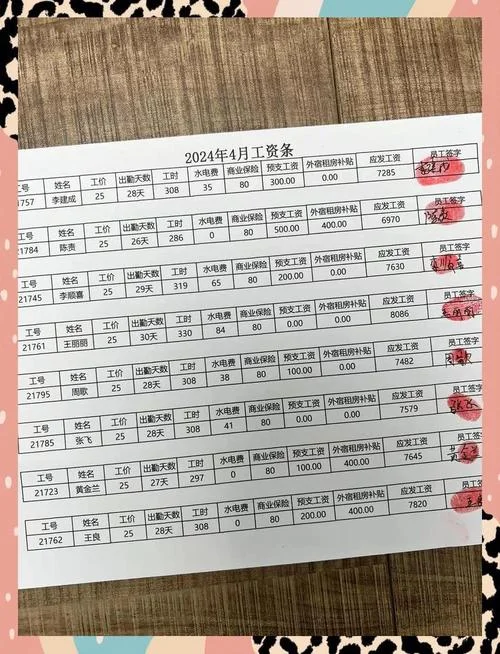 2024年4月工资条
工号 姓名 工价 出勤天数 工时 水电费 商业保险 预支工资 外宿租房补贴 应发工资 员工签字
1757 李建成 25 28天 308 35 80 300.00 0.00 7285
工号 姓名 工价 出勤天数 工时 水电费 商业保险 预支工资 外宿租房补贴 应发工资 员工签字
21784 陈责 25 26天 286 0 80 500.00 400.00 6970
工号 姓名 工价 出勤天数 工时 水电费 商业保险 预支工资 外宿租房补贴 应发工资 员工签字
21745 李顺喜 25 29天 319 65 80 200.00 0.00 7630
工号 姓名 工价 出勤天数 工时 水电费 商业保险 预支工资 外宿租房补贴 应发工资 员工签字
21761 王丽丽 25 30天 330 84 80 0.00 0.00 8086
工号 姓名 工价 出勤天数 工时 水电费 商业保险 预支工资 外宿租房补贴 应发工资 员工签字
21795 周歌 25 28天 308 38 80 100.00 0.00 7482 周歌
工号 姓名 工价 出勤天数 工时 水电费 商业保险 预支工资 外宿租房补贴 应发工资 员工签字
21785 张飞 25 28天 308 41 80 0.00 0.00 7579 张飞
工号 姓名 工价 出勤天数 工时 水电费 商业保险 预支工资 外宿租房补贴 应发工资 员工
21723 黄金兰 25 27天 297 0 80 100.00 400.00 7645
工号 姓名 工价 出勤天数 工时 水电费 商业保险 预支工资 外宿租房补贴 应发工资 员工
21762 王良 25 28天 308 0 80 200.00 400.00 7820